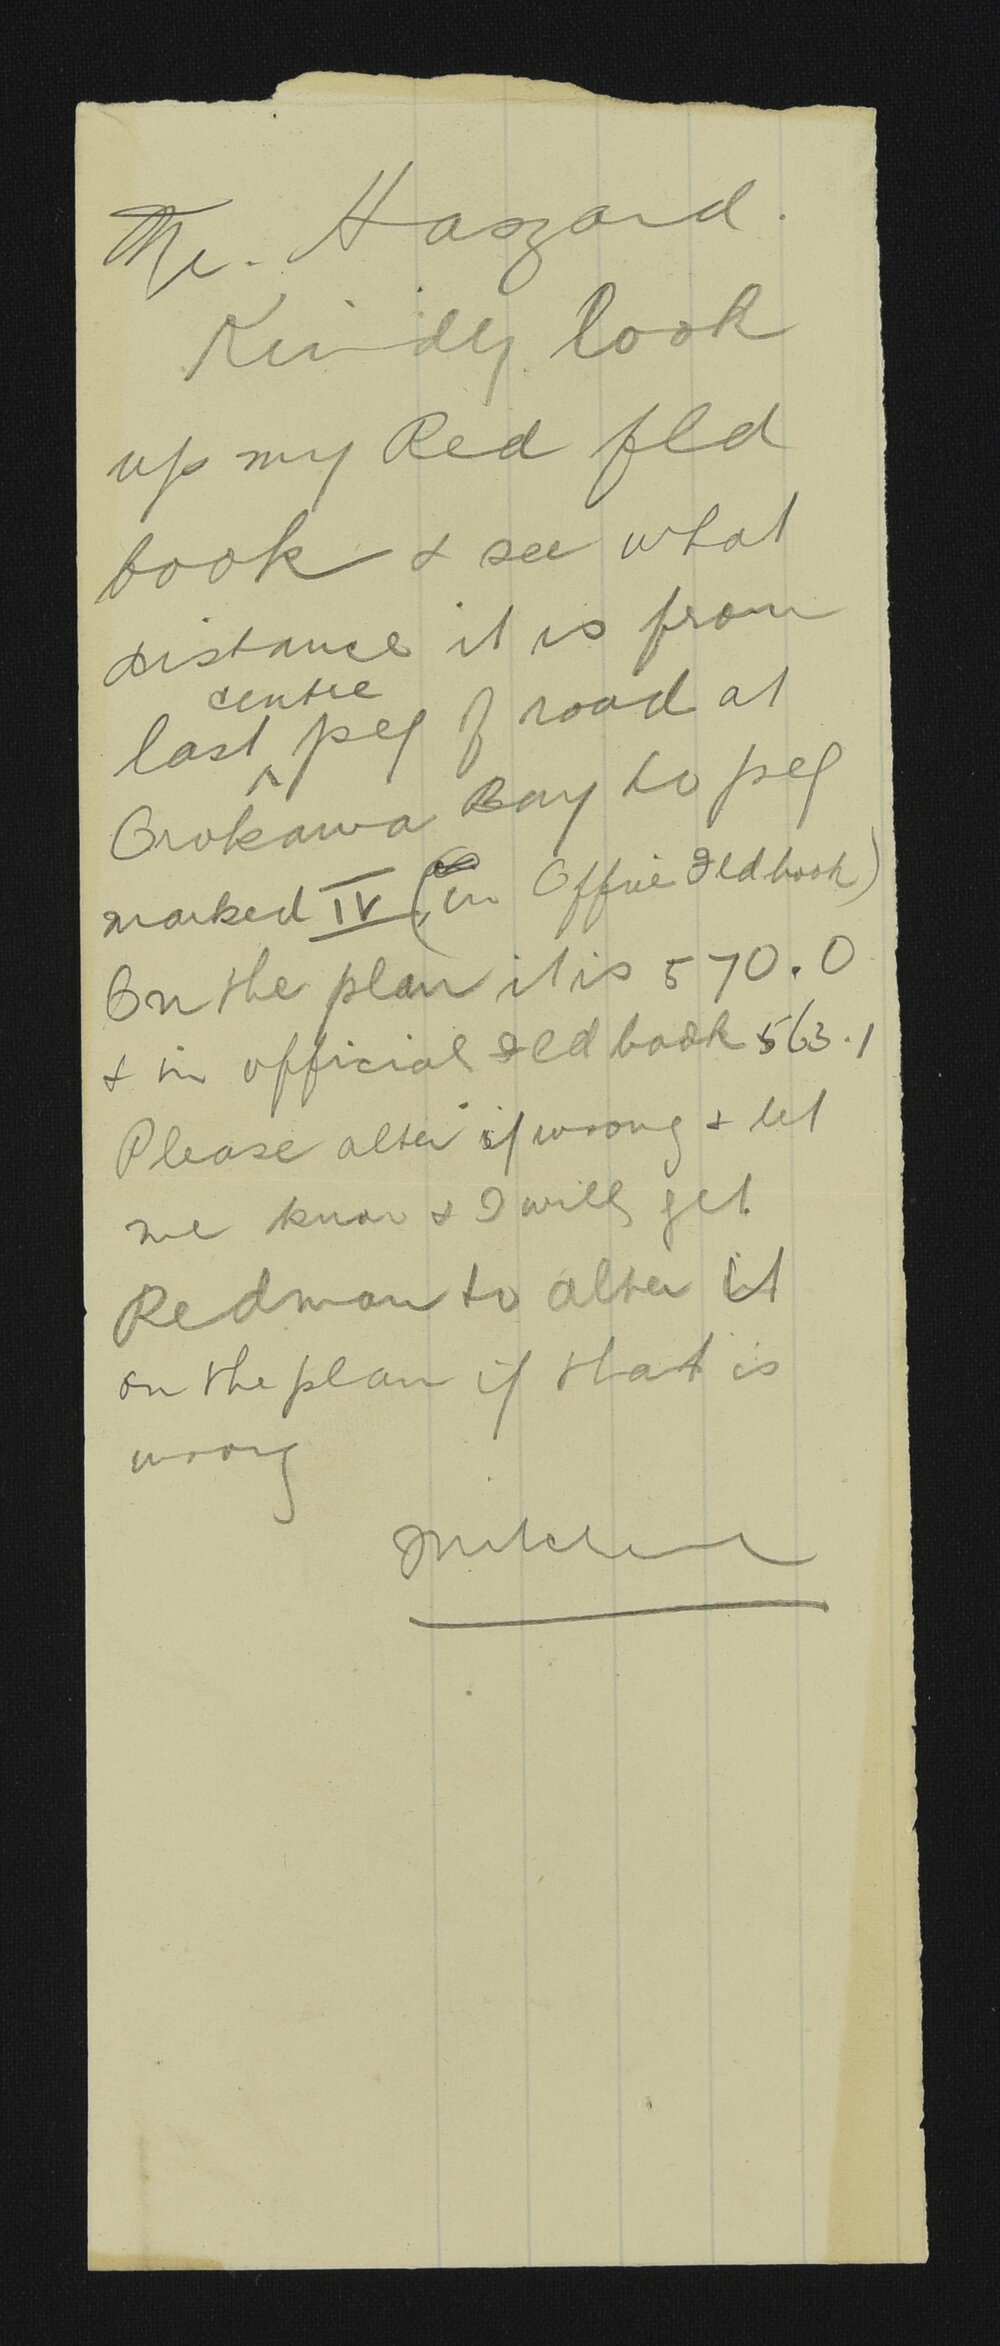 Mr. Haszard.
Kindly look
up my Red fld
book & see what
distance it is from
last centre peg of road at
Orokawa Bay to peg
marked IV (in Office Fldbook)
On the plan it is 570.0
& in official Fld book 563.1
Please alter if wrong & let
me know & I will get
Redman to alter it
on the plan if that is
wrong